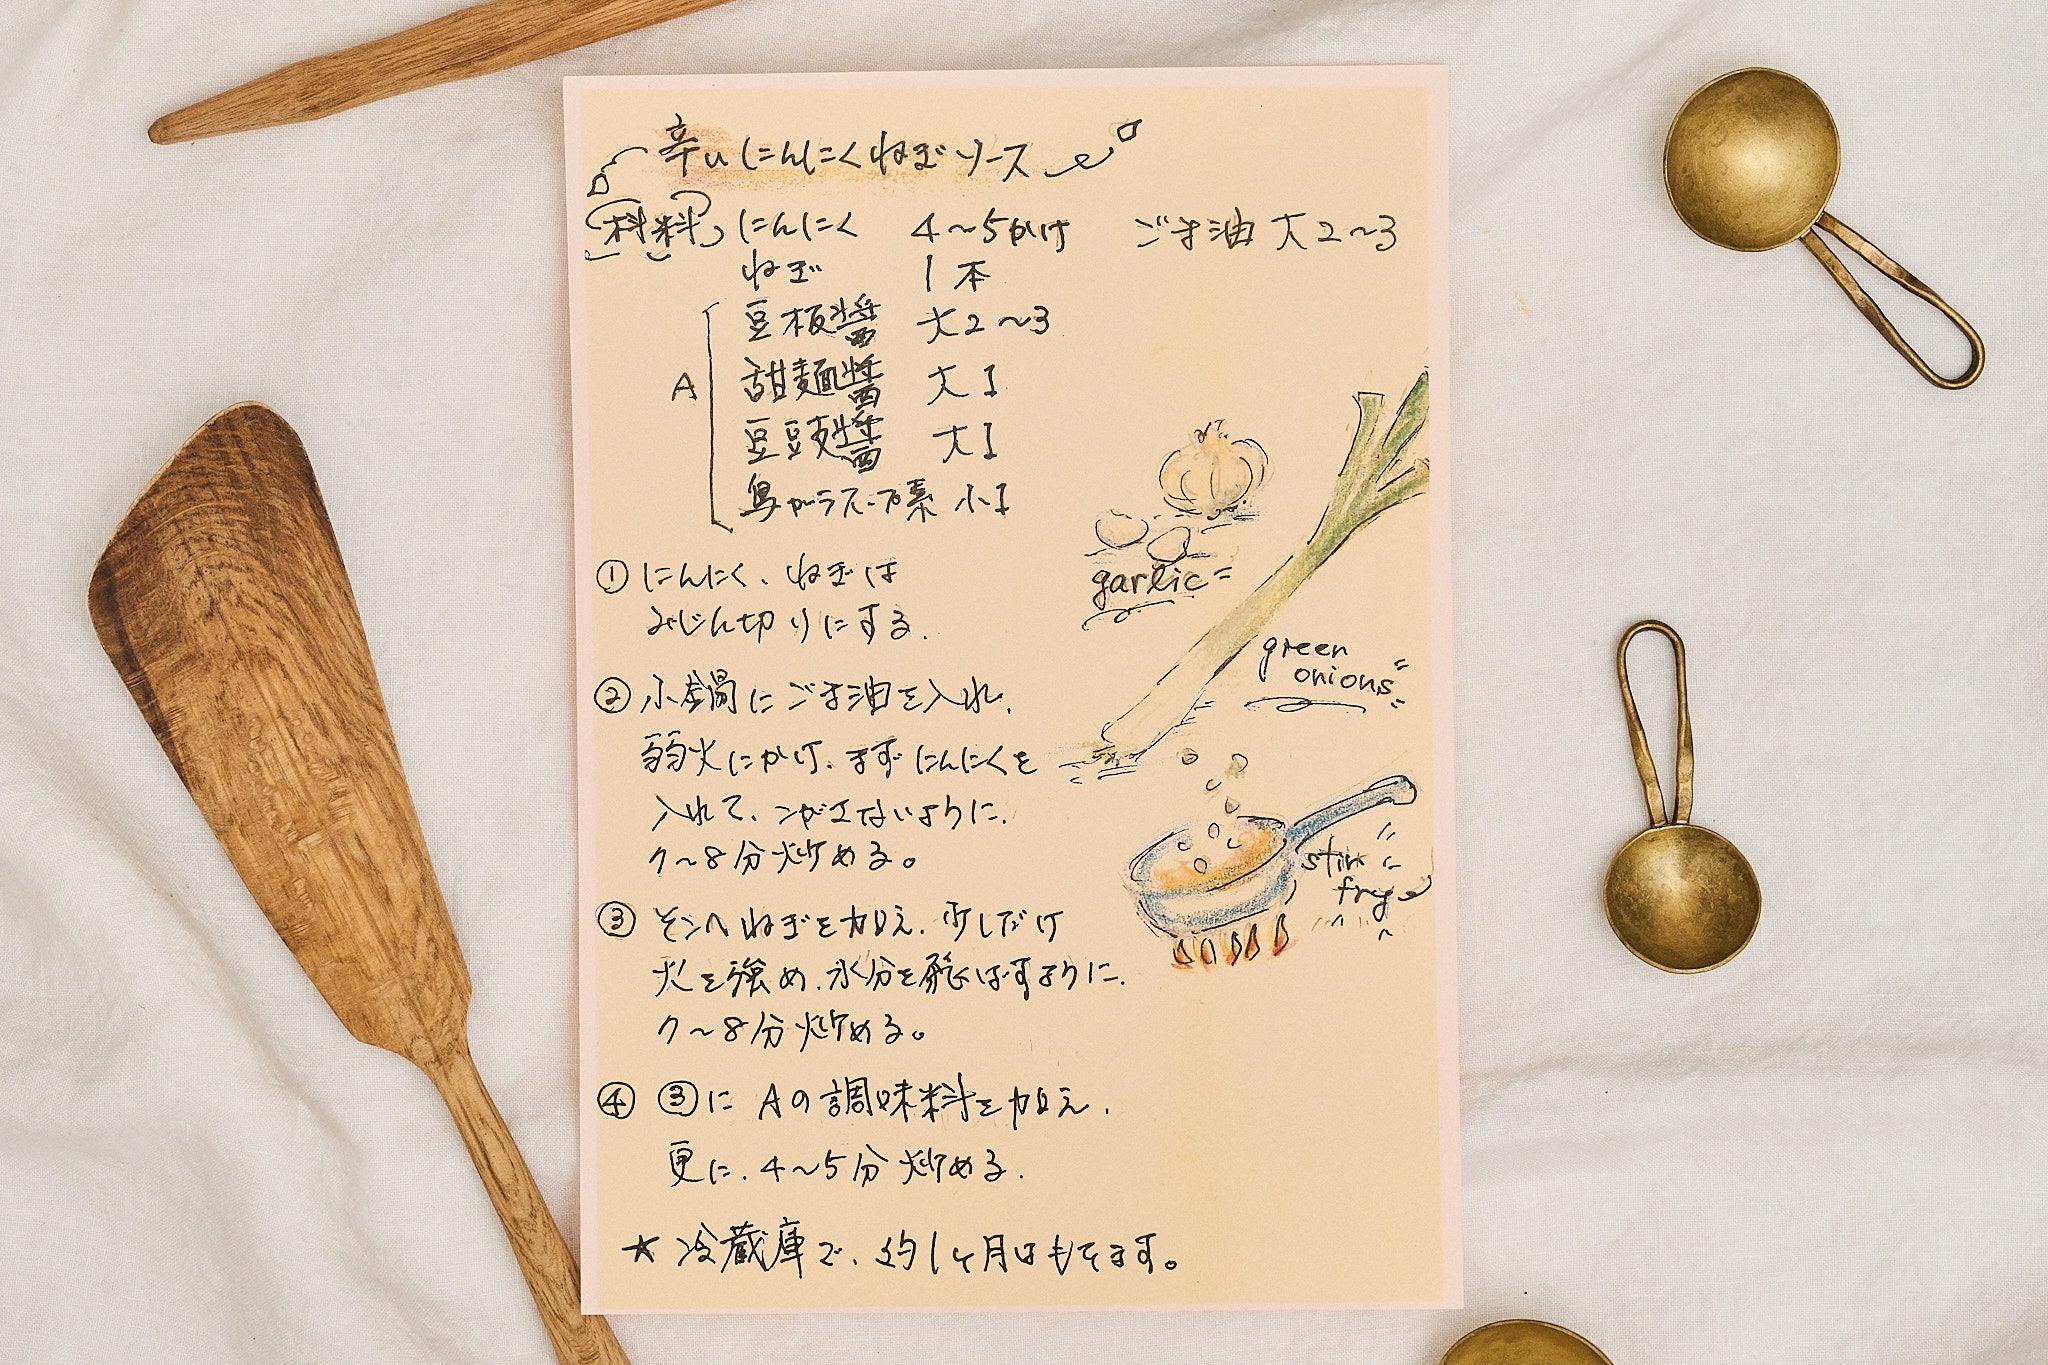 辛いにんにくねぎソース
材料 にんにく 4〜5かけ ごま油 大2〜3
ねぎ 1本
A
豆板醤 大2〜3
甜麺醤 大1
豆豉醤 大1
鳥がらスープ素 小1
① にんにく、ねぎは
みじん切りにする.
② 小鍋にごま油を入れ、
弱火にかけ、まずにんにくを
入れて、こがさないように、
7〜8分炒める。
③ そこへねぎを加え、少しだけ
火を強め、水分を飛ばすように、
7〜8分炒める。
④ ③に Aの調味料を加え、
更に、4〜5分炒める.
★ 冷蔵庫で、約1ヶ月はもてます。
garlic
green
onions
stir
fry